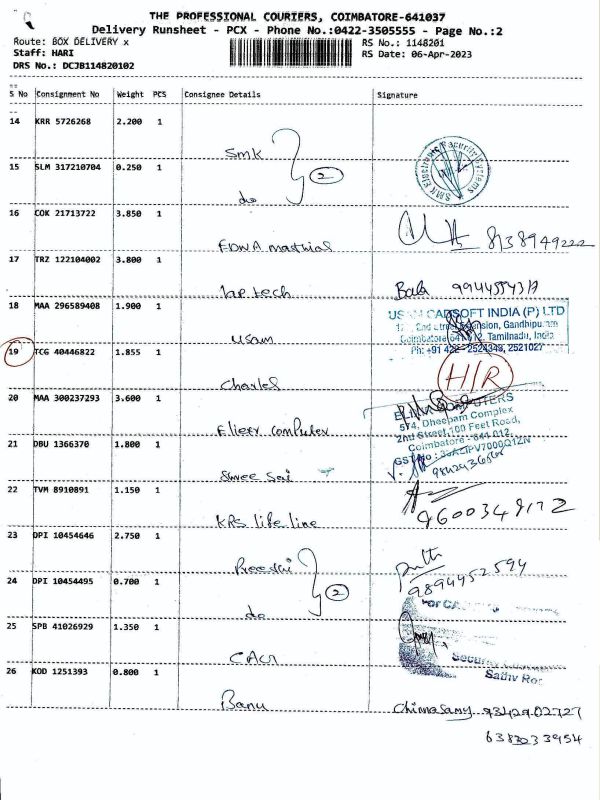 THE PROFESSIONAL COURIERS, COIMBATORE-641037
Delivery Runsheet - PCX - Phone No.:0422-3505555 - Page No.:2
Route: BOX DELIVERY x
RS No.: 1148201
Staff: HARI
RS Date: 06-Apr-2023
DRS No.: DCJB114820102
S No Consignment No Weight PCS Consignee Details Signature
14 KRR 5726268 2.200 1
SMK
2
SMK Electronic Security Systems
15 SLM 317210704 0.250 1
do
16 COK 21713722 3.850 1
EDNA
8138949222
17 TRZ 122104002 3.800 1
lap tech
Bala
18 MAA 296589408 1.900 1
CADSOFT INDIA (P) LTD
Gandhipuram
Usam
Coimbatore Tamilnadu, India
Ph: +91 422 2524349, 2521027
19 TCG 40446822 1.855 1
Charles
H/R
20 MAA 300237293 3.600 1
574, Dheepam Complex
2nd Street, 100 Feet Road,
Coimbatore - 641 012.
Eliexy computer
21 DBU 1366370 1.800 1
GST No :
Shree Sai
22 TVM 8910891 1.150 1
KRS life line
9600349172
23 DPI 10454646 2.750 1
Preethi
2
9894452594
24 DPI 10454495 0.700 1
do
25 SPB 41026929 1.350 1
Security
26 KOD 1251393 0.800 1
Banu
Chinnasamy 9342902727
6383233954